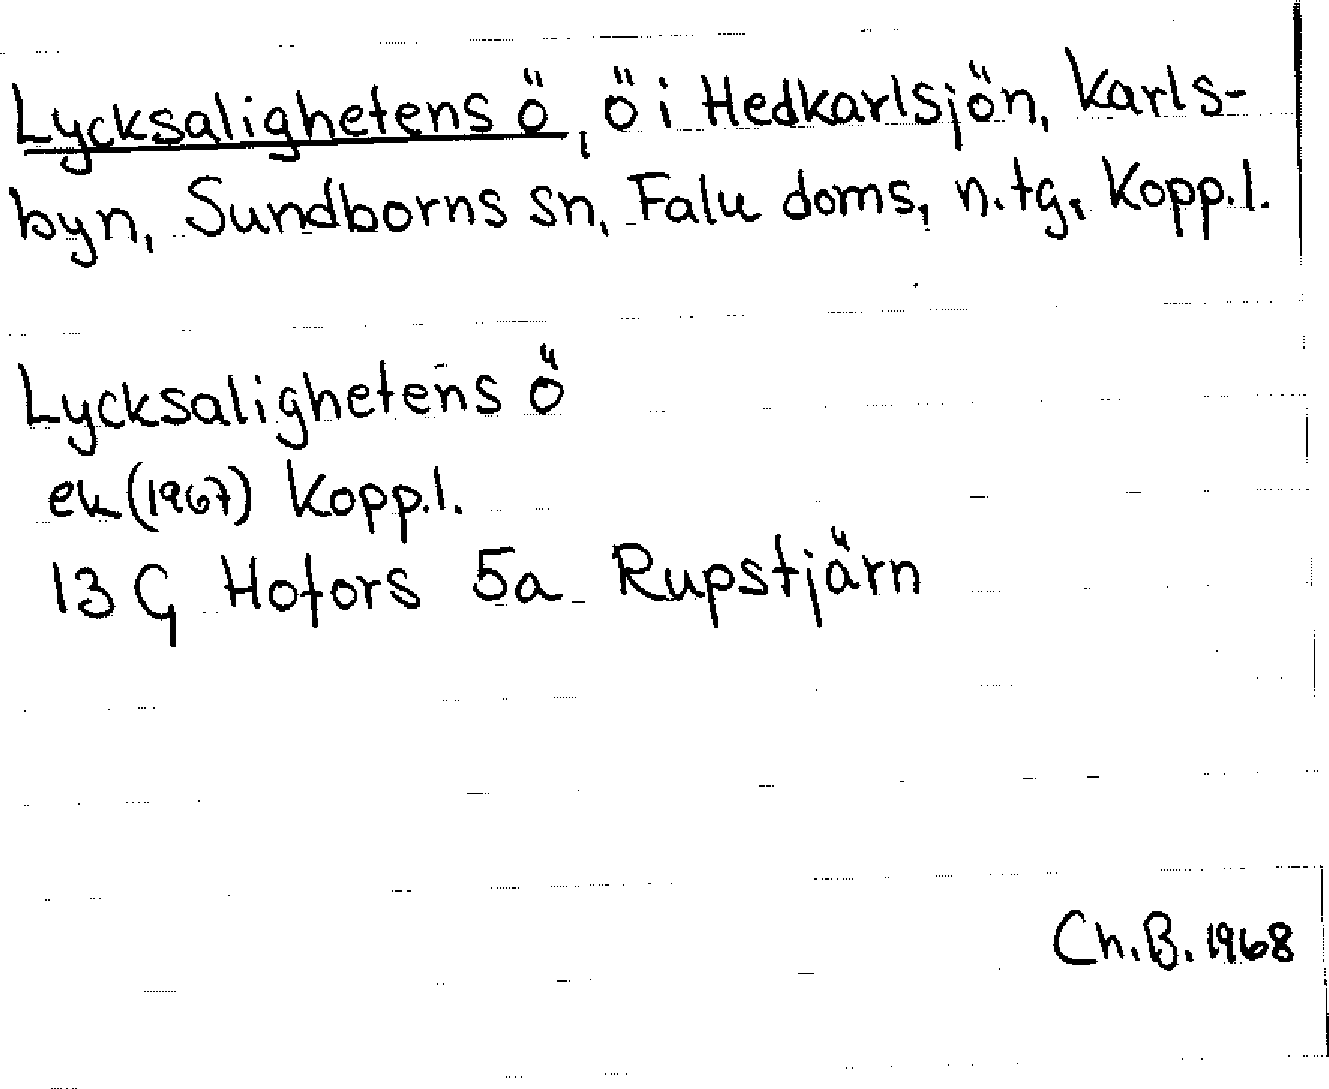 Lycksalighetens ö, ö i Hedkarlsjön, Karls-
byn, Sundborns sn, Falu doms, n.tg, Kopp.l.
Lycksalighetens ö
ek (1967) Kopp.l.
13 G Hofors 5a Rupstjärn
Ch.B. 1968